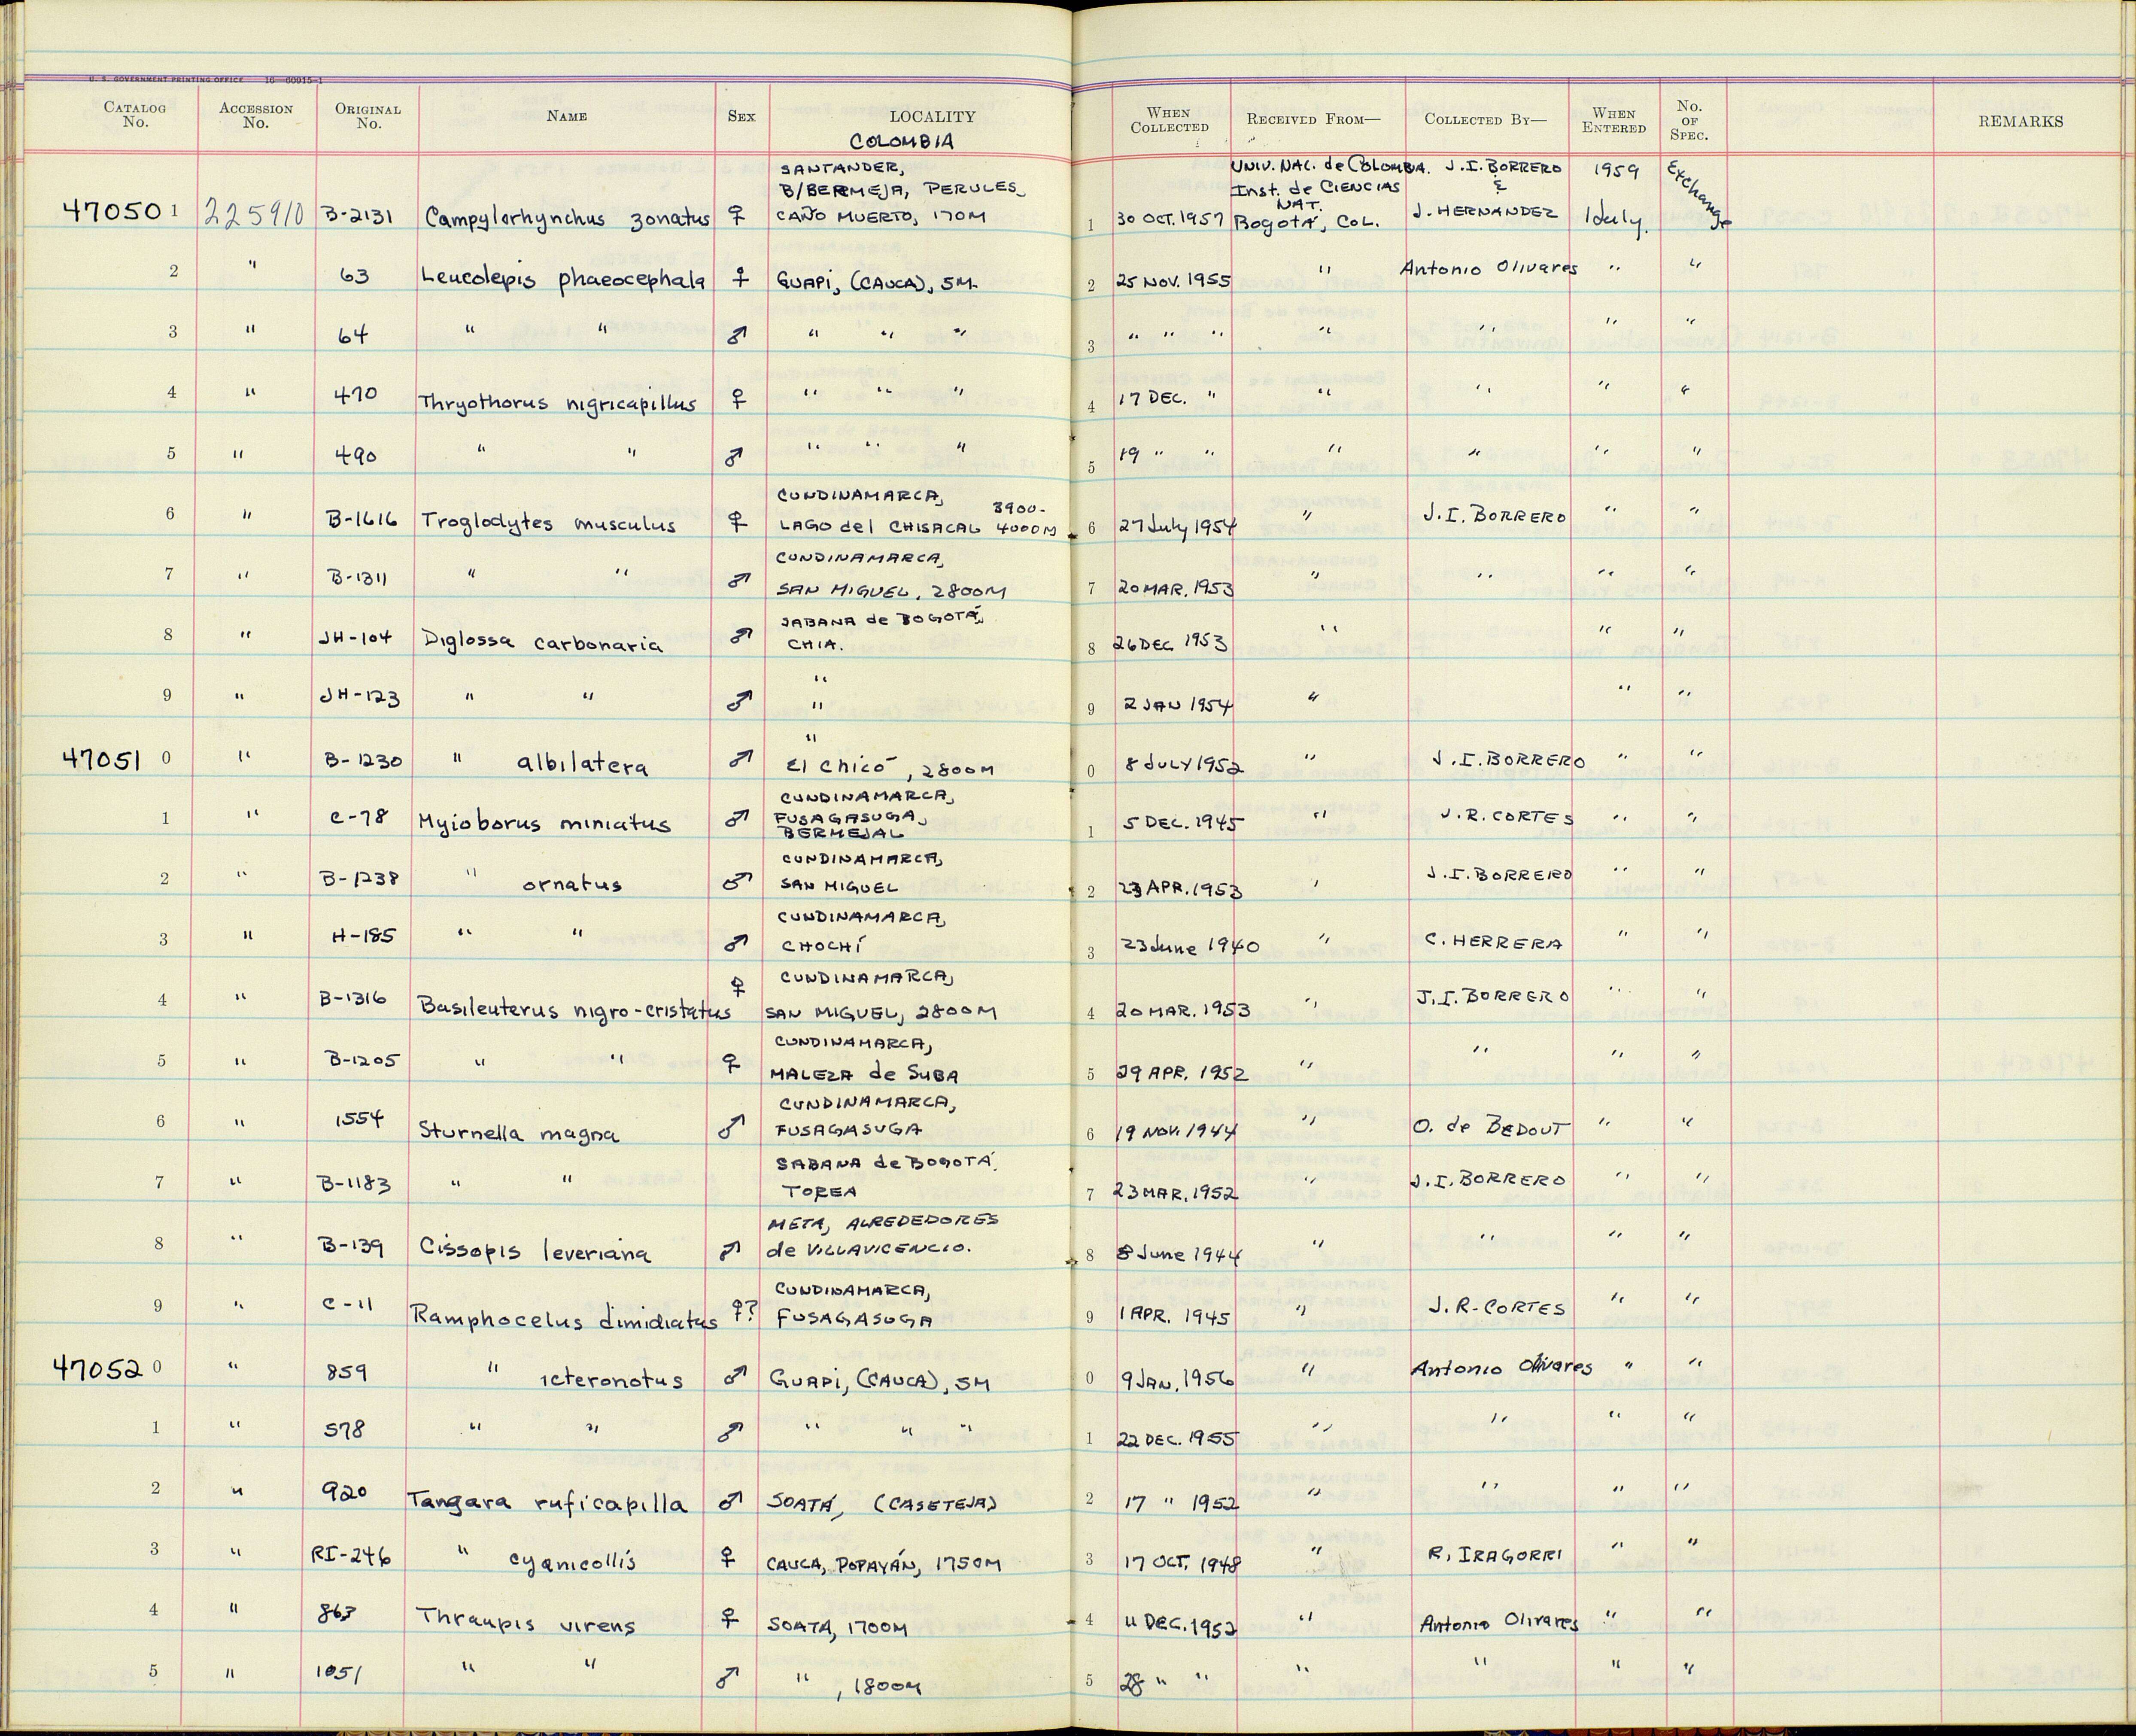 U. S. GOVERNMENT PRINTING OFFICE 16—60015-1
CATALOG No. ACCESSION No. ORIGINAL No. NAME SEX LOCALITY WHEN COLLECTED RECEIVED FROM— COLLECTED BY— WHEN ENTERED No. OF SPEC. REMARKS
COLOMBIA
47050 1 225910 B-2131 Campylorhynchus zonatus ♀ SANTANDER, B/BERMEJA, PERULES, CAÑO MUERTO, 170M 1 30 OCT. 1957 UNIV. NAC. de COLOMBIA. Inst. de CIENCIAS NAT. Bogotá, COL. J.I. BORRERO & J. HERNANDEZ 1959 1 July. Exchange
2 " 63 Leucolepis phaeocephala ♀ GUAPI, (CAUCA), 5M. 2 25 NOV. 1955 " Antonio Olivares " "
3 " 64 " " ♂ " " " 3 " " " " " " "
4 " 470 Thryothorus nigricapillus ♀ " " " 4 17 DEC. " " " " "
5 " 490 " " ♂ " " " 5 19 " " " " " "
6 " B-1616 Troglodytes musculus ♀ CUNDINAMARCA, LAGO del CHISACAL 3900-4000M 6 27 July 1954 " J.I. BORRERO " "
7 " B-1311 " " ♂ CUNDINAMARCA, SAN MIGUEL, 2800M 7 20 MAR. 1953 " " " "
8 " JH-104 Diglossa carbonaria ♂ SABANA de BOGOTÁ, CHIA. 8 26 DEC 1953 " " "
9 " JH-123 " " ♂ " " 9 2 JAN 1954 " " "
47051 0 " B-1230 " albilatera ♂ " El Chicó, 2800M 0 8 JULY 1952 " J.I. BORRERO " "
1 " C-78 Myioborus miniatus ♂ CUNDINAMARCA, FUSAGASUGA, BERMEJAL 1 5 DEC. 1945 " J.R. CORTES " "
2 " B-1238 " ornatus ♂ CUNDINAMARCA, SAN MIGUEL 2 23 APR. 1953 " J.I. BORRERO " "
3 " H-185 " " ♂ CUNDINAMARCA, CHOCHÍ 3 23 June 1940 " C. HERRERA " "
4 " B-1316 Basileuterus nigro-cristatus ♀ CUNDINAMARCA, SAN MIGUEL, 2800M 4 20 MAR. 1953 " J.I. BORRERO " "
5 " B-1205 " " ♀ CUNDINAMARCA, MALEZA de SUBA 5 29 APR. 1952 " " " "
6 " 1554 Sturnella magna ♂ CUNDINAMARCA, FUSAGASUGA 6 19 NOV. 1944 " O. de BEDOUT " "
7 " B-1183 " " SABANA de BOGOTÁ, TOREA 7 23 MAR. 1952 " J.I. BORRERO " "
8 " B-139 Cissopis leveriana ♂ META, ALREDEDORES de VILLAVICENCIO. 8 8 June 1944 " " " "
9 " C-11 Ramphocelus dimidiatus ♀? CUNDINAMARCA, FUSAGASUGA 9 1 APR. 1945 " J.R-CORTES " "
47052 0 " 859 " icteronotus ♂ GUAPI, (CAUCA), 5M 0 9 JAN. 1956 " Antonio Olivares " "
1 " 578 " " ♂ " " " 1 22 DEC. 1955 " " " "
2 " 920 Tangara ruficapilla ♂ SOATÁ, (CASETEJA) 2 17 " 1952 " " " "
3 " RI-246 " cyanicollis ♀ CAUCA, POPAYÁN, 1750M 3 17 OCT. 1948 " R. IRAGORRI " "
4 " 863 Thraupis virens ♀ SOATA, 1700M 4 11 DEC. 1952 " Antonio Olivares " "
5 " 1051 " " ♂ " , 1800M 5 28 " " " " " "